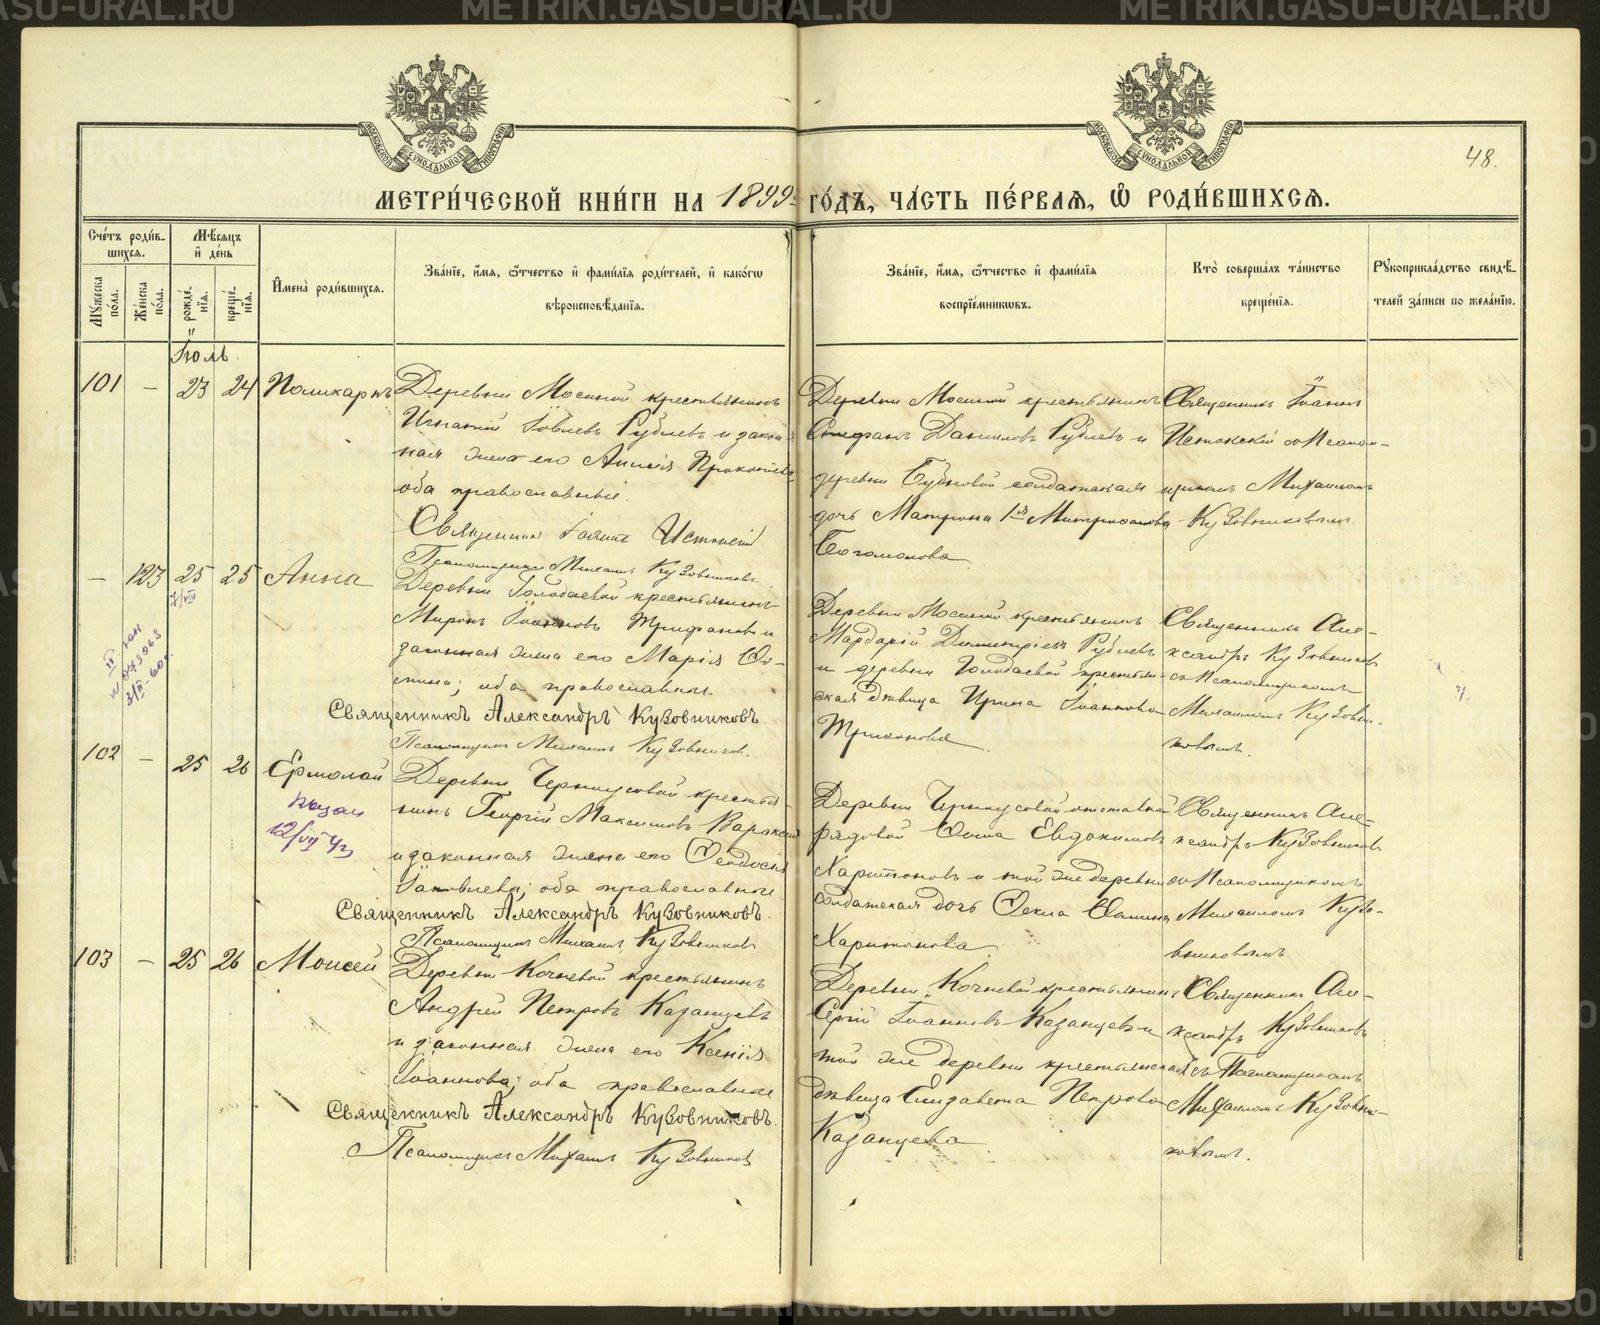 METRIKI.GASU-URAL.RU
48.
МЕТРИ́ЧЕСКОЙ КНИ́ГИ НА 1899 ГО́ДЪ, ЧА́СТЬ ПЕ́РВАЯ, Ѡ РОДИ́ВШИХСЯ.
Сче́тъ роди́вшихся.
Мꙋ́жеска по́ла.
Же́нска по́ла.
Мѣ́сяцъ и҆ де́нь
рожде́нїя.
креще́нїя.
И҆мена̀ роди́вшихся.
Зва́нїе, и҆́мя, ѻ҆́тчество и҆ фами́лїя роди́телей, и҆ како́гѡ вѣроисповѣ́данїя.
Зва́нїе, и҆́мя, ѻ҆́тчество и҆ фами́лїя воспрїе́мникѡвъ.
Кто̀ соверша́лъ та́инство креще́нїя.
Рꙋкоприкла́дство свидѣ́телей за́писи по жела́нїю.
Іюль.
101 — 23 24 Поликарпъ
Деревни Мосиной крестьянинъ
Игнатій Іовлевъ Рублевъ и закон-
ная жена его Анисія Прокопіева
оба православные.
Священникъ Іоаннъ Истокскій
Псаломщикъ Михаилъ Кузовниковъ
Деревни Мосиной крестьянинъ
Стефанъ Даниловъ Рублевъ и
деревни Бубновой солдатская
дочь Матрона 1я Митрофанова
Богомолова
Священникъ Іоаннъ
Истокскій съ Псалом-
щикомъ Михаиломъ
Кузовниковымъ.
— 123 25 25 Анна
7/VIII
Деревни Голодаевой крестьянинъ
Миронъ Іоанновъ Трифановъ и
законная жена его Марія Фо-
тина; оба православные.
Священникъ Александръ Кузовниковъ.
Псаломщикъ Михаилъ Кузовниковъ.
Деревни Мосиной крестьянинъ
Мардарій Димитріевъ Рублевъ
и деревни Голодаевой крестьян-
ская дѣвица Ирина Іоаннова
Трифонова
Священникъ Але-
ксандръ Кузовниковъ
съ Псаломщикомъ
Михаиломъ Кузовни-
ковымъ.
102 — 25 26 Ермолай
Деревни Черноусовой крестья-
нинъ Георгій Максимовъ Вараксинъ
и законная жена его Ѳеодосія
Іаковлева; оба православные
Священникъ Александръ Кузовниковъ.
Псаломщикъ Михаилъ Кузовниковъ
Деревни Черноусовой отставной
рядовой Ѳома Евдокимовъ
Харитоновъ и той же деревни
солдатская дочь Ѳекла Ѳомина
Харитонова
Священникъ Але-
ксандръ Кузовниковъ
съ Псаломщикомъ
Михаиломъ Кузо-
вниковымъ
103 — 25 26 Моисей
Деревни Кочневой крестьянинъ
Андрей Петровъ Казанцевъ
и законная жена его Ксенія
Іоаннова; оба православные
Священникъ Александръ Кузовниковъ.
Псаломщикъ Михаилъ Кузовниковъ
Деревни Кочневой крестьянинъ
Сергій Іоанновъ Казанцевъ и
той же деревни крестьянская
дѣвица Елизавета Петрова
Казанцева
Священникъ Але-
ксандръ Кузовниковъ
съ Псаломщикомъ
Михаиломъ Кузовни-
ковымъ.